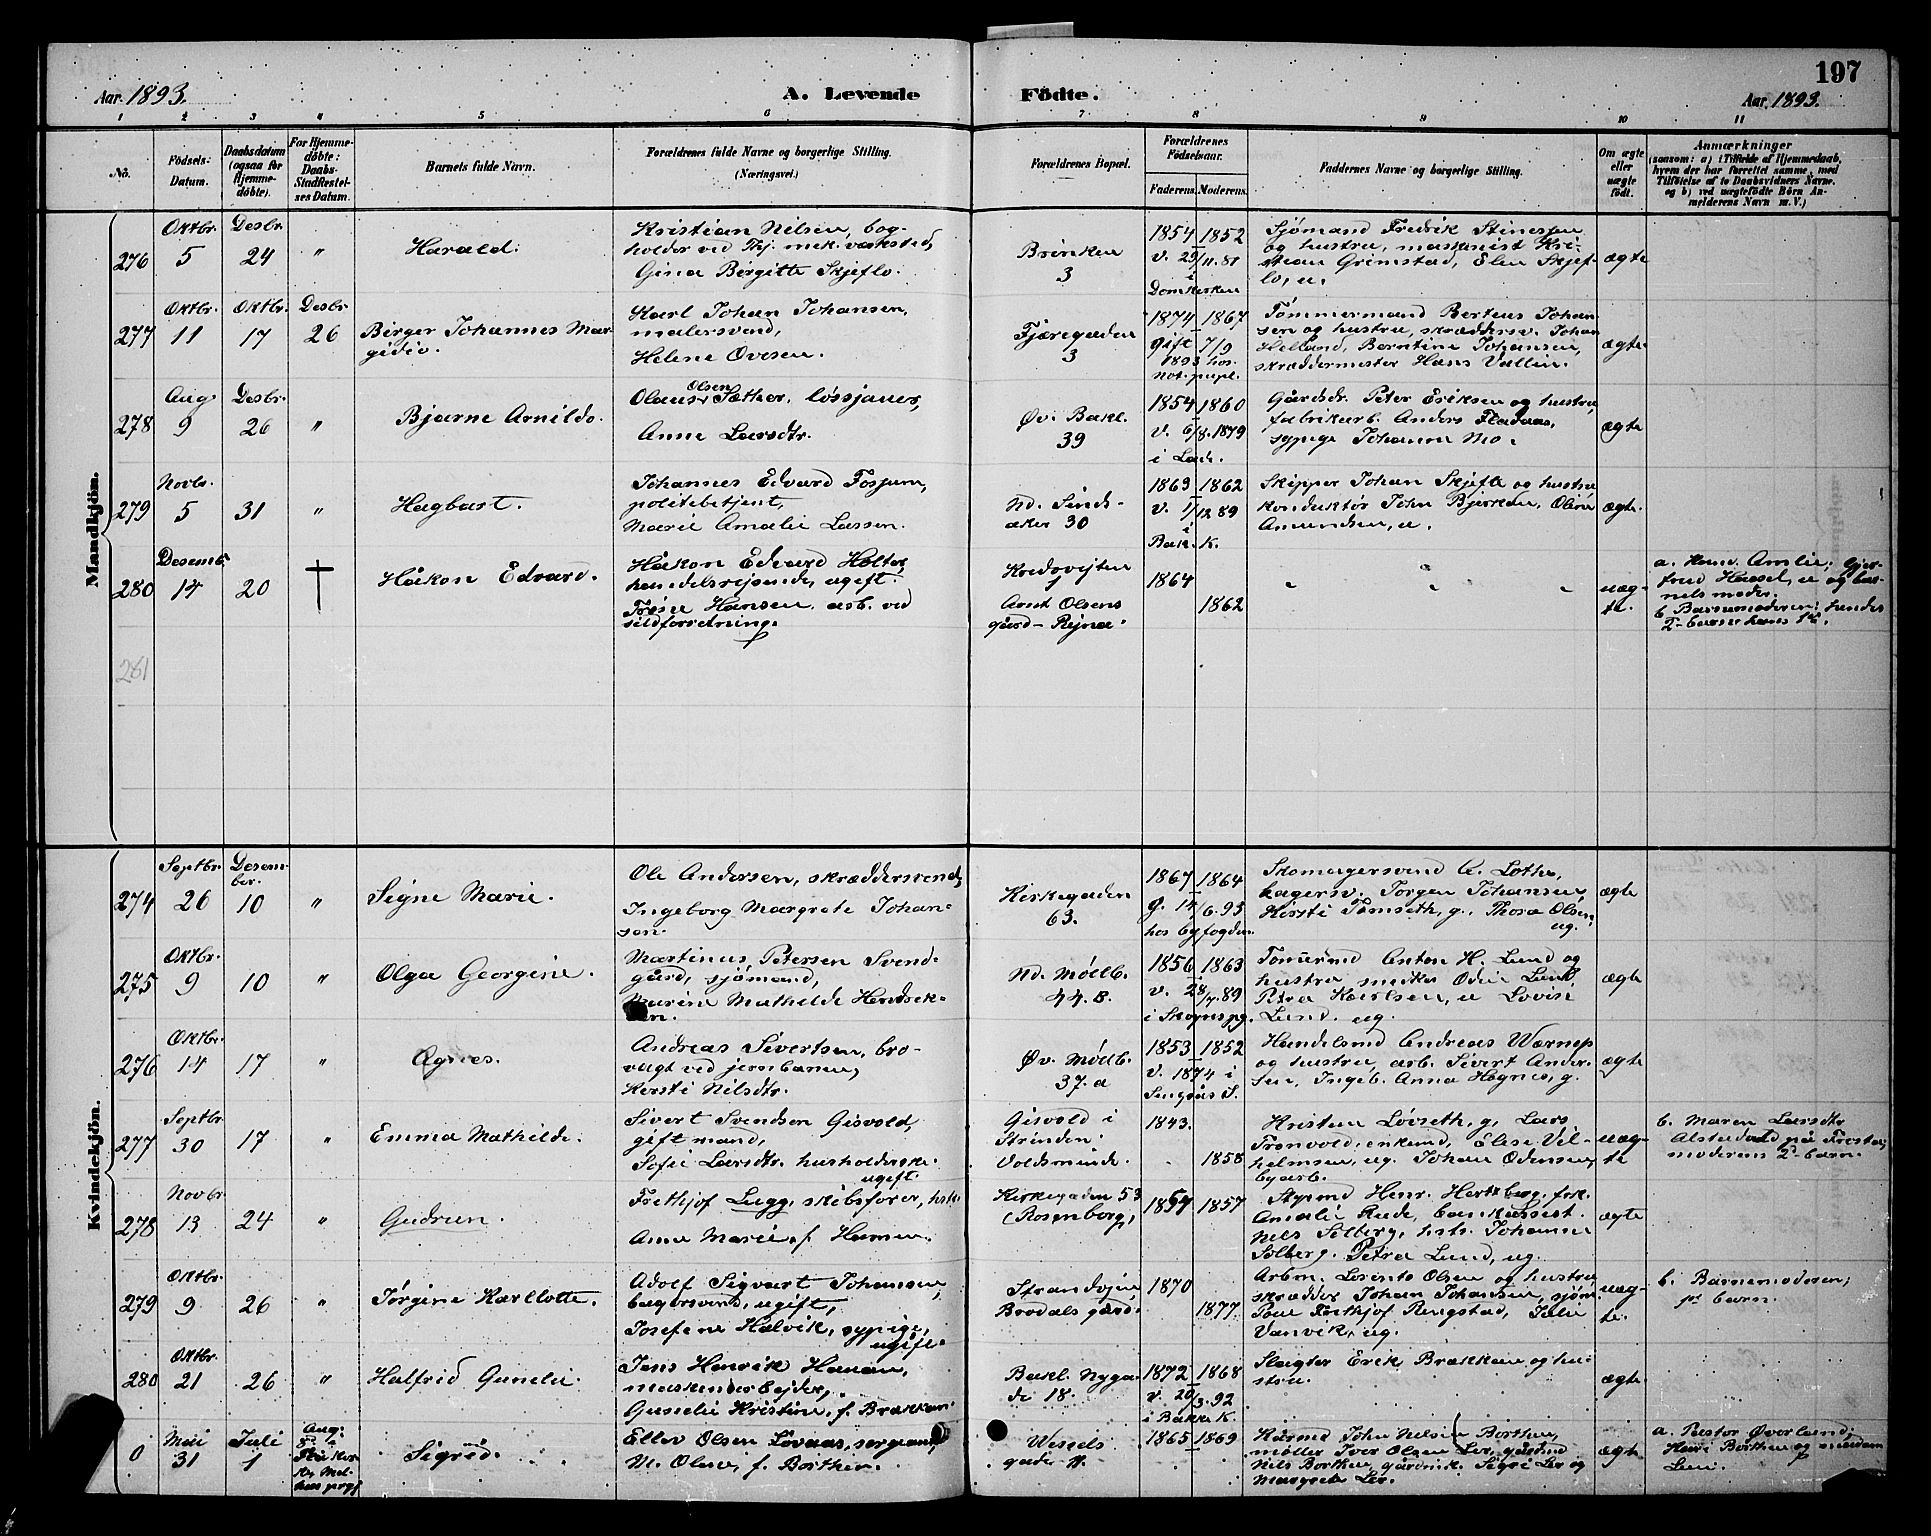 197
Aar. 1893.
A. Levende
Födte.
Aar. 1893.
1 2 3 4 5 6 7 8 9 10 11
No.
Födsels-
Datum.
Daabsdatum
(ogsaa for
Hjemme-
döbte).
For Hjemme-
döbte:
Daabs-
Stadfæstel-
ses Datum.
Barnets fulde Navn.
Forældrenes fulde Navne og borgerlige Stilling.
(Næringsvei.)
Forældrenes Bopæl.
Forældrenes
Födselsaar.
Faderens. Moderens.
Faddernes Navne og borgerlige Stilling.
Om ægte
eller
uægte
födt.
Anmærkninger
(saasom: a) i Tilfælde af Hjemmedaab,
hvem der har forrettet samme, med
Tilföielse af to Daabsvidners Navne,
og b) ved uægtefödte Börn An-
melderens Navn m. V.)
Mandkjön.
276
Oktbr.
5
Desbr.
24
"
Harald.
Kristian Nilsen, bog-
holder ved Thj. mek. værksted,
Gina Birgitte Skjeflo.
Brinken
3
1854 1852
v. 29/11.81
i
Domkirken
Sjømand Fredrik Stinessen
og hustru, maskinist Kri-
stian Grimstad, Elen Skjef-
lo, u.
ægte
277
Oktbr.
11
Oktbr.
17
Desbr.
26
Birger Johannes Mar-
gido.
Karl Johan Johansen,
malersvend,
Helene Ovesen.
Fjæregaden
3
1874 1867
gift 7/9
1893 hos
not. pupl.
Tømmermand Berteus Johan-
sen og hustru, skræddersv. Johan
Helland, Berntine Johansen,
skræddermester Hans Vallin.
ægte
278
Aug
9
Desbr.
26
"
Bjarne Arnilds.
Olsen
Olaus Sæther, løssjauer,
Anne Larsdtr.
Øv. Bakl.
39
1854 1860
v. 6/8.1879
i Lade.
Gårdsdr. Peter Eriksen og hustru,
fabrikarb. Anders Fladaas,
sypige Johanna Mo.
ægte
279
Novbr.
5
31
"
Hagbart.
Johannes Edvard Fossum,
politibetjent,
Marie Amalie Larsen.
Nd. Sinds-
aker 30
1863 1862
v. 1/12 89
i
Bak. K.
Skipper Johan Skjeflo og hustru
konduktør John Bjerkan, Oline
Amundsen, u.
ægte.
280
Desemb.
14
20
†
Håkon Edvard.
Håkon Edvard Holter,
handelsrejsende, ugift.
Hansen, arb. ved
sildforretning.
1
Arnt Olsens
gård – Rejna.
1864
1862
"
uæg-
te.
a. Amlie, Gjer-
trud Hassel, u og bar-
nets moder.
b. Barnemoderen; hendes
2- barn hans 1ste.
281
Kvindekjön.
274
Septbr.
26
Desem-
ber.
10
"
Signe Marie.
Ole Andersen, skræddersvend,
Ingeborg Margrete Johan-
sen.
Kirkegaden
63.
1867 1864
g. 14/6.93
hos byfogden.
Skomagersvend A. Lothe,
bagersv. Jørgen Johansen,
Kirsti Tomseth, g., Thora Olsen,
ug.
ægte
275
Oktbr.
9
10
"
Olga Georgine.
Martinus Petersen Svend-
gård, sjømand,
Marine Mathilde Hendrik-
sen.
Nd. Møllb.
44. B.
1856 1863
v. 28/7.89
i Skognspg.
Tømrmd Anton H. Lund og
hustru, Odin Lund,
Petra Karlsen, u Lovise
Lund. ug.
ægte
276
Oktbr.
14
17
"
Agnes.
Andreas Sivertsen, bro-
vagt ved jernbanen,
Kersti Nilsdtr.
Øv. Møllb.
37. a
1853 1852
v. 1874 i
Singsås S.
Handelsmd Andreas Wærnes
og hustru, arb. Sivert Ander-
sen, Ingeb. Anna Hognes, g.
ægte
277
Septbr
30
17
"
Emma Mathilde.
Sivert Svendsen Gisvold,
gift mand,
Sofie Larsdtr. husholderske
ugift.
Gisvold i
Strinden.
Voldsminde.
1843.
1858
Kristen Løvseth, g, Lars
Trønvold, enkemd, Elise Vil-
helmsen, ug. Johan Odensen,
byarb.
uæg-
te
b. Maren Larsdtr
Alstadvold på Frosta;
moderens 2- barn.
278
Novbr
13
24
"
Gudrun.
Frethjof Lugg, skibsfører,
Anna Marie, f. Hansen.
Kirkegaden 53
(Rosenborg)
1854 1857
Styrmd Henr. Hertzberg, frk.
Amalie Rude, bankassist.
Nils Solberg, hstr. Johanna
Solberg. Petra Lund, ug.
ægte
279
Oktbr.
9
26
"
Jørgine Karllotte.
Adolf Sigvart Johansen,
bagersvend, ugift,
Josefine Halvik, sypige,
ugift.
Strandvejen
Brodals gård.
1870
1877.
Arbm. Lorents Olsen og hustru
skrædder Johan Johansen, sjøm
Frithjof Ringstad, Julie
Vanvik, ug.
uæg-
te.
b. Barnemoderen;
1ste barn.
280
Oktbr.
21
26
"
Halfrid Gunelie.
Jens Henrik Hansen,
maskinarbejder,
Gunelie Kristine, f. Brækkan.
Bakl. Nyga-
de 18.
1872 1868
v. 20/3.92
i Bakke K.
Slagter Erik Brækkan og hu-
stru.
ægte.
0
Mai
31
Juli
1
Aug:
Flå kir-
ke, Mel-
hus prgj
Sigrid.
Eller Olsen Løvaas, sergeant,
M. Olsen, f. Borthen.
Wessels
gade 11.
1865 1869
Kårmd John Nilsen Borthen,
møller Iver Olsen Ler, gårdmd
Nils Borthen, gårdmk. Sigri Ler og
Margrete Ler.
ægte
a. Pastor Øverland,
Borthen og